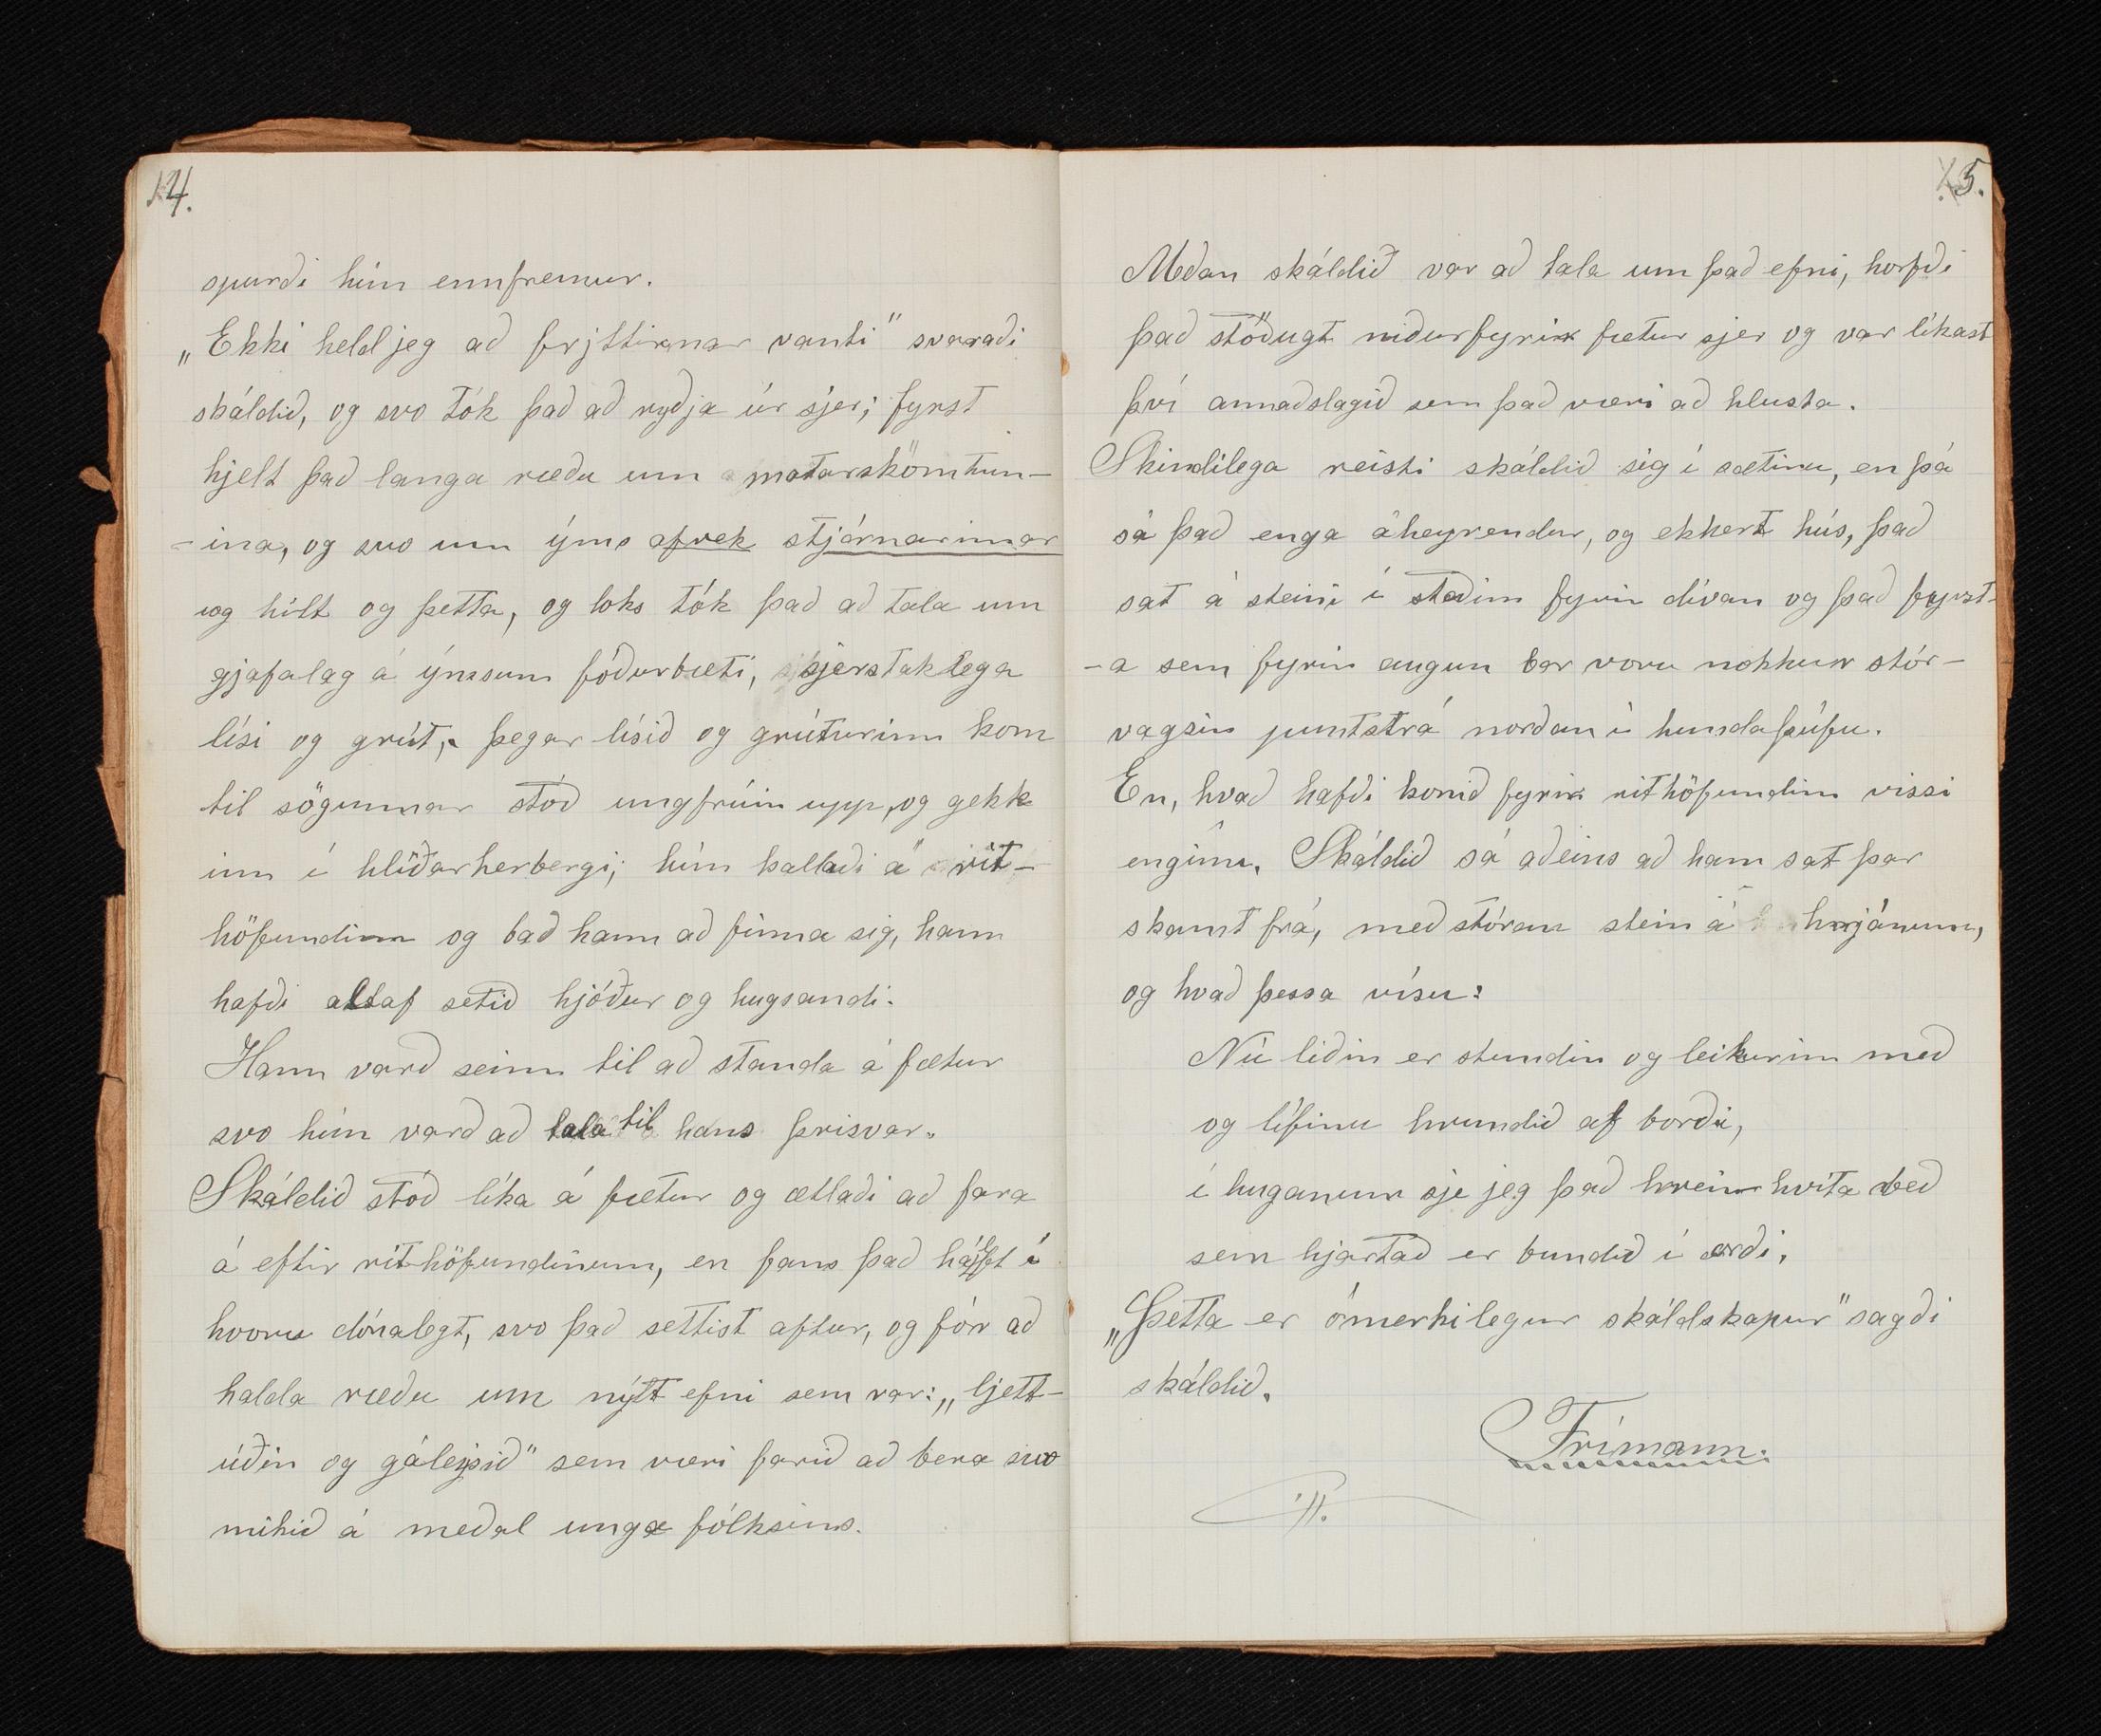 14.
spurði hún ennfremur.
„Ekki held jeg að frjettirnar vanti" svaraði
skáldið, og svo tók það að ryðja úr sjer; fyrst
hjelt það langa ræðu um matarskömtun-
-ina, og svo um ýms afrek stjórnarinnar
og hitt og þetta, og loks tók það að tala um
gjafalag á ýmsum fóðurbæti, sjerstaklega
lísi og grút, þegar lísið og grúturinn kom
til sögunnar stóð ungfrúin upp, og gekk
inn í hliðarherbergi; hún kallaði á rit-
höfundinn og bað hann að finna sig, hann
hafði altaf setið hjóður og hugsandi.
Hann varð seinn til að standa á fætur
svo hún varð að tala til hans þrisvar.
Skáldið stóð líka á fætur og ætlaði að fara
á eftir rithöfundinum, en fans það hálft í
hvoru dónalegt, svo það settist aftur, og fór að
halda ræðu um nýtt efni sem var: „ljett-
úðin og gáleysið" sem væri farið að bera svo
mikið á meðal unga fólksins.
15.
Meðan skáldið var að tala um það efni, horfði
það stöðugt niðurfyrir fætur sjer og var líkast
því annaðslagið sem það væri að hlusta.
Skindilega reisti skáldið sig í sætinu, en þá
sá það enga áheyrendur, og ekkert hús, það
sat á steini í staðin fyrir dívan og það fyrst-
-a sem fyrir augun bar voru nokkur stór-
vagsin puntstrá norðan í hundaþúfu.
En, hvað hafði komið fyrir rithöfundinn vissi
enginn. Skáldið sá aðeins að hann sat þar
skamt frá, með stóran stein á hnjánum,
og hvað þessa vísu:
Nú liðin er stundin og leikurinn með
og lífinu hrundið af borði,
í huganum sje jeg það hrein hvíta beð
sem hjartað er bundið í orði.
„Þetta er ómerkilegur skáldskapur" sagði
skáldið.
Frímann.